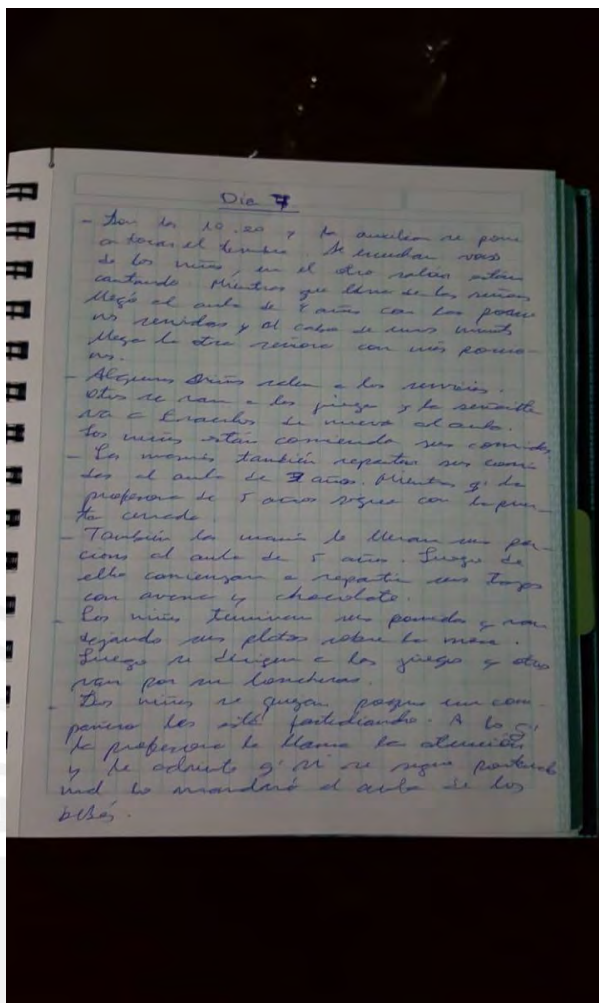 Día 7
- Son las 10:20 y la auxiliar se pone
a tocar el timbre. Se escuchan voces
de los niños, en el otro salón están
cantando. Mientras que una de las señoras
llegó al aula de 4 años con las porcio
nes servidas y al cabo de unos minuts
llega la otra señora con más porcio-
nes.
- Algunos niños salen a los servicios.
Otros se van a los juegos y la señorita
va a traerlos de nuevo al aula.
Los niños están comiendo sus comidas.
- Las mamás también reparten sus comi-
das al aula de 3 años. Mientras q' la
profesora de 5 años sigue con la puer-
ta cerrada
- También las mamás le llevan sus por-
ciones al aula de 5 años. Luego de
ello comienzan a repartir sus tazas
con avena y chocolate.
- Los niños terminan sus comidas y van
dejando sus platos sobre la mesa.
Luego se dirigen a los juegos y otros
van por su loncheras.
- Dos niños se quejan porque un com-
pañero los está fastidiando. A lo q'
la profesora le llama la atención
y le advierte q' si se sigue portando
mal lo mandará al aula de los
bebés.